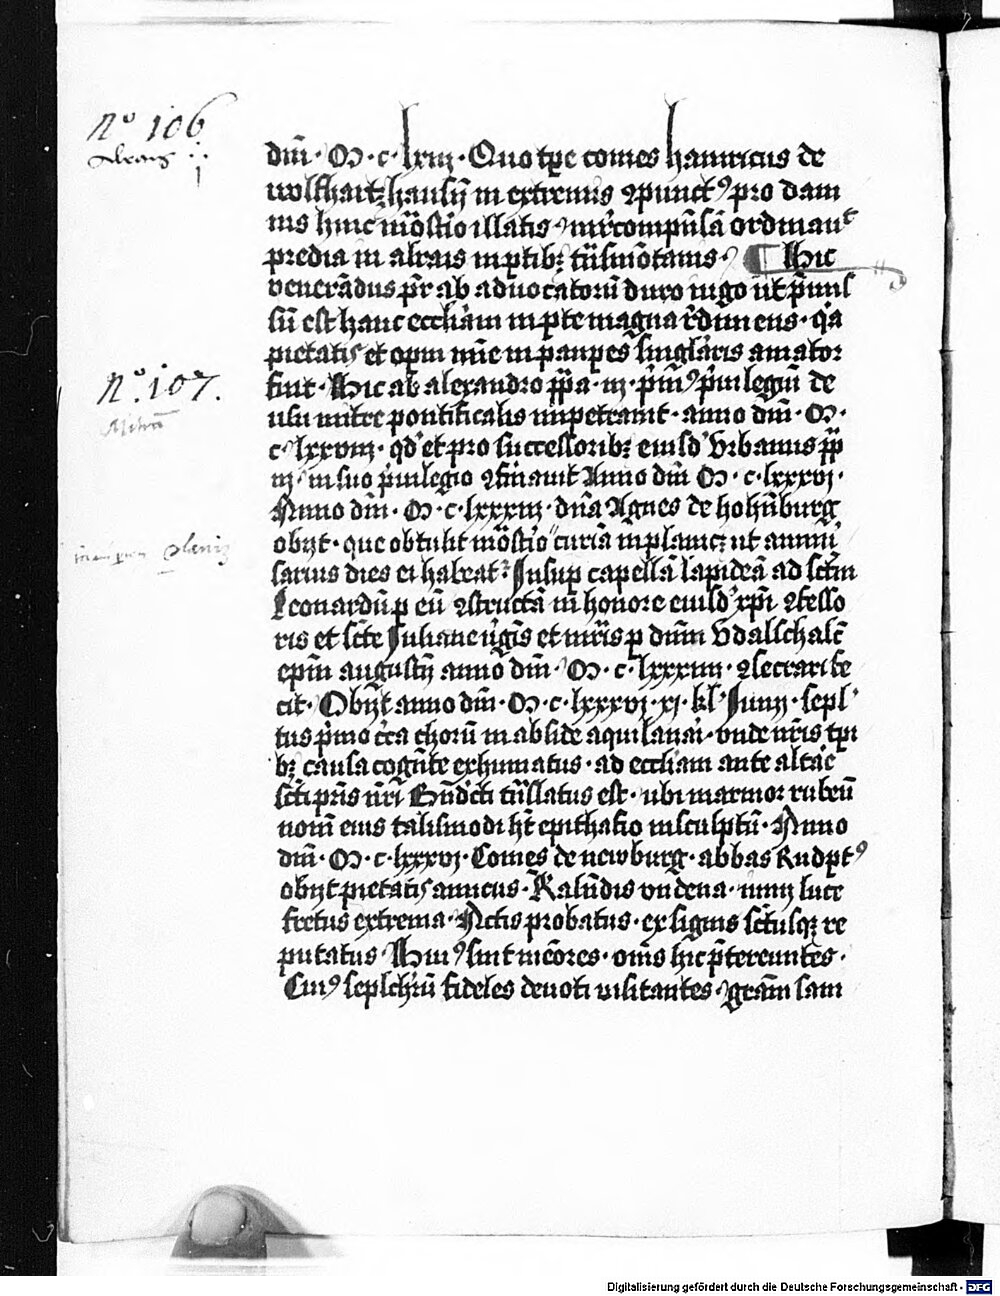 nº 106
dm̄ · M · c · lxiij · Quo tꝑe comes hainricus de
wolffhartzhausn̄ in extremis ꝯpunctꝰ pro dam
nis huic mōst̄io illatis · in r̄compn̄sā ordinaut
predia in alrais in ptibꝫ tn̄smōtanis · ¶ Hic
venerādus pr̄ ab aduocatorū duro iugo ut p̄mis
sū est hanc eccliam in pte magna r̄dimens · qa
pietatis et opm̄ mīe in paupes singlaris amator
nº · 107 ·
fuit · Hic ab alexandro ppa · iij · pmꝰ p̄uilegiū de
usu mitre pontificalis impetrauit · anno dm̄ · M ·
c · lxxviij · qd et pro successoribꝫ eiusd Vrbanus pp
iij · in suo p̄uilegio ꝯfirmauit Anno dm̄ M · c · lxxxvj ·
Anno dm̄ · M · c · lxxxiij · dn̄a Agnes de hohn̄burg
obijt · que obtulit mōst̄io curiā in planc ut anniu
sarius dies ei habeat · Insup capellā lapideā ad sc̄tm
Leonardū p eū ꝯstructā in honore eiusd xp̄i ꝯfesso
ris et sc̄te Juliane ūgis et mr̄is p dn̄m Vdalschalc̄
epm̄ augustn̄ anno dm̄ · M · c · lxxxiiij · ꝯsecrari fe
cit · Obijt anno dm̄ · M · c · lxxxvj · xj · kl Junij · sepl
tus p̄mo c̄ca chorū in abside aquilonari · vnde nr̄is tꝑi
bꝫ causa cogn̄te exhumatus · ad eccliam ante altāe
sc̄ti pr̄is nr̄i Bn̄dc̄ti tn̄slatus est · ubi marmor rubeū
nomē eius talismodi ht̄ epithafio insculptū · Anno
dm̄ · M · c · lxxxvj · Comes de newburg · abbas Rudptꝰ
obijt pietatis amicus · Kalūdis vndena · iunij luce
fretus extrema · Actis probatus · ex signis sc̄tusqꝫ re
putatus · Huiꝰ sint mēores · om̄s hic p̄tereuntes ·
Cuiꝰ seplchrū fideles deuoti visitantes · gr̄am sani
Digitalisierung gefördert durch die Deutsche Forschungsgemeinschaft - DFG